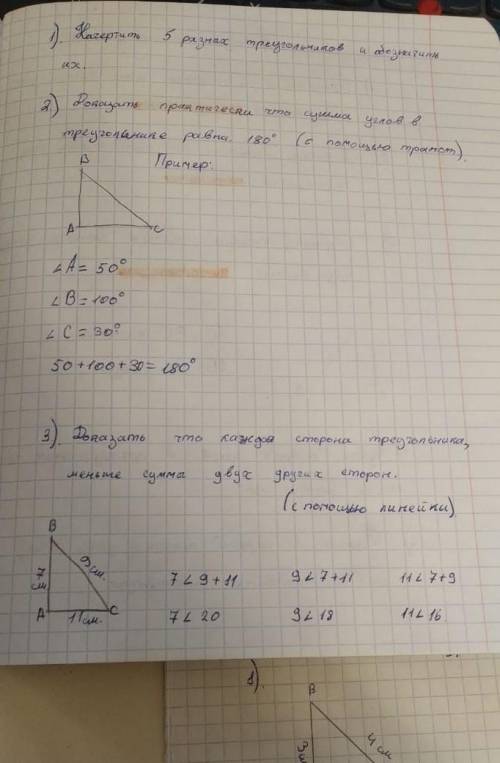 1). Начертить 5 разнах треугольников и обозначить
их.
2.) Доказать практически что сумма углов в
треугольнике равна 180° (с помощью трансп).
Пример:
B
A
C
∠A = 50°
∠B = 100°
∠C = 30°
50+100+30 = 180°
3). Доказать что каждая сторона треугольника,
меньше сумма двух других сторон.
(с помощью линейки)
B
7 см
9 см.
A
11 см.
C
7 < 9 + 11
9 < 7 + 11
11 < 7 + 9
7 < 20
9 < 18
11 < 16
1).
B
4 см
3 см